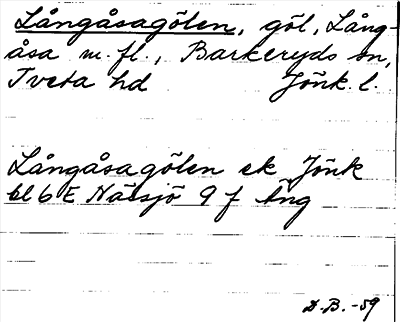 Långåsagölen, göl, Lång-
åsa m.fl., Barkeryds sn,
Tveta hd Jönk. l.
Långåsagölen ek Jönk
bl 6E Nässjö 9 f Äng
D.B. -59